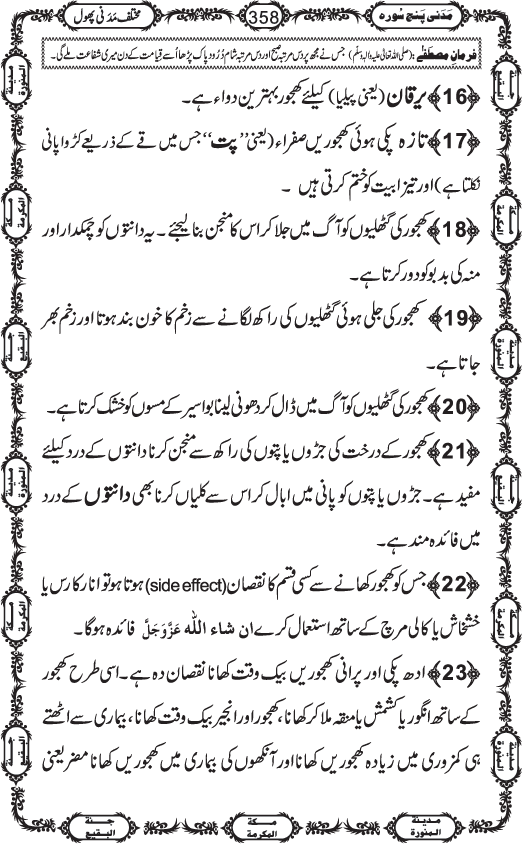 مَدَنی پَنج سُورہ
358
مختلف مَدَنی پھول
فرمانِ مصطفٰے : (صلی اللہ تعالیٰ علیہ والہٖ وسلّم) جس نے مجھ پر دس مرتبہ صبح اور دس مرتبہ شام دُرُود پاک پڑھا اُسے قیامت کے دن میری شفاعت ملے گی۔
﴿16﴾ یرقان (یعنی پیلیا) کیلئے کھجور بہترین دواء ہے۔
﴿17﴾ تازہ پکی ہوئی کھجوریں صفراء (یعنی ’’پت‘‘ جس میں قے کے ذریعے کڑوا پانی
نکلتا ہے) اور تیزابیت کو ختم کرتی ہیں ۔
﴿18﴾ کھجور کی گٹھلیوں کو آگ میں جلا کر اس کا منجن بنا لیجئے ۔ یہ دانتوں کو چمکدار اور
منہ کی بدبو کو دور کرتا ہے۔
﴿19﴾ کھجور کی جلی ہوئی گٹھلیوں کی راکھ لگانے سے زخم کا خون بند ہوتا اور زخم بھر
جاتا ہے۔
﴿20﴾ کھجور کی گٹھلیوں کو آگ میں ڈال کر دھونی لینا بواسیر کے مسوں کو خشک کرتا ہے۔
﴿21﴾ کھجور کے درخت کی جڑوں یا پتوں کی راکھ سے منجن کرنا دانتوں کے درد کیلئے
مفید ہے۔ جڑوں یا پتوں کو پانی میں ابال کر اس سے کلیاں کرنا بھی دانتوں کے درد
میں فائدہ مند ہے۔
﴿22﴾ جس کو کھجور کھانے سے کسی قسم کا نقصان (side effect) ہوتا ہو تو انار کا رس یا
خشخاش یا کالی مرچ کے ساتھ استعمال کرے ان شاء اللہ عَزَّوَجَلَّ فائدہ ہوگا۔
﴿23﴾ ادھ پکی اور پرانی کھجوریں بیک وقت کھانا نقصان دہ ہے۔ اسی طرح کھجور
کے ساتھ انگور یا کشمش یا منقہ ملا کر کھانا، کھجور اور انجیر بیک وقت کھانا، بیماری سے اٹھتے
ہی کمزوری میں زیادہ کھجوریں کھانا اور آنکھوں کی بیماری میں کھجوریں کھانا مضر یعنی
مدینۃ المنورۃ
مکۃ المکرمۃ
جنۃ البقیع